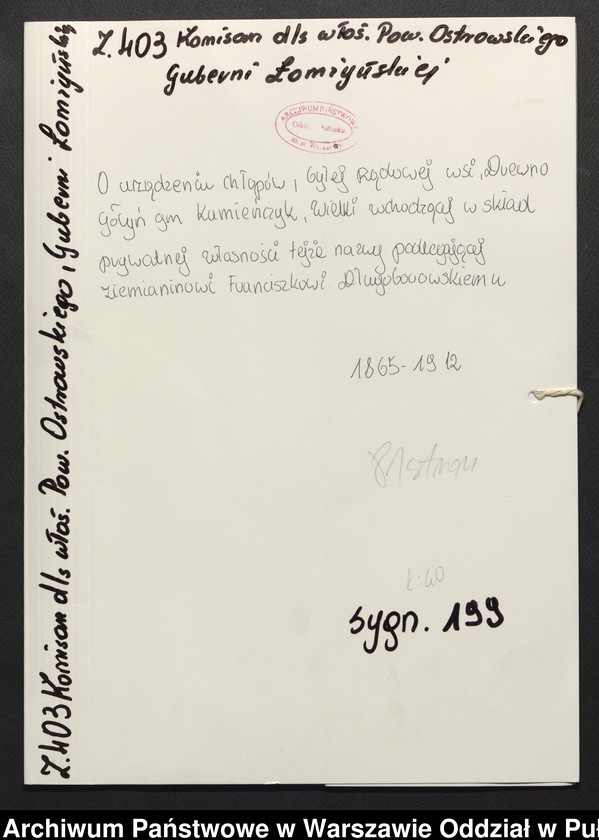 Z. 403 Komisarz d/s włoś. Pow. Ostrowskiego
Guberni Łomżyńskiej
ARCHIWUM PAŃSTWOWE
O urządzeniu chłopów, byłej Rządowej wsi, Drewno
Gołyń gm Kamieńczyk, Wielki wchodzącej w skład
prywatnej własności tejże nazwy podlegającej
ziemianinowi Franciszkowi Długoborowskiemu
1865-1912
81 stron
k-40
sygn. 199
Z. 403 Komisarz d/s włoś. Pow. Ostrowskiego, Guberni Łomżyńskiej
Archiwum Państwowe w Warszawie Oddział w Puł